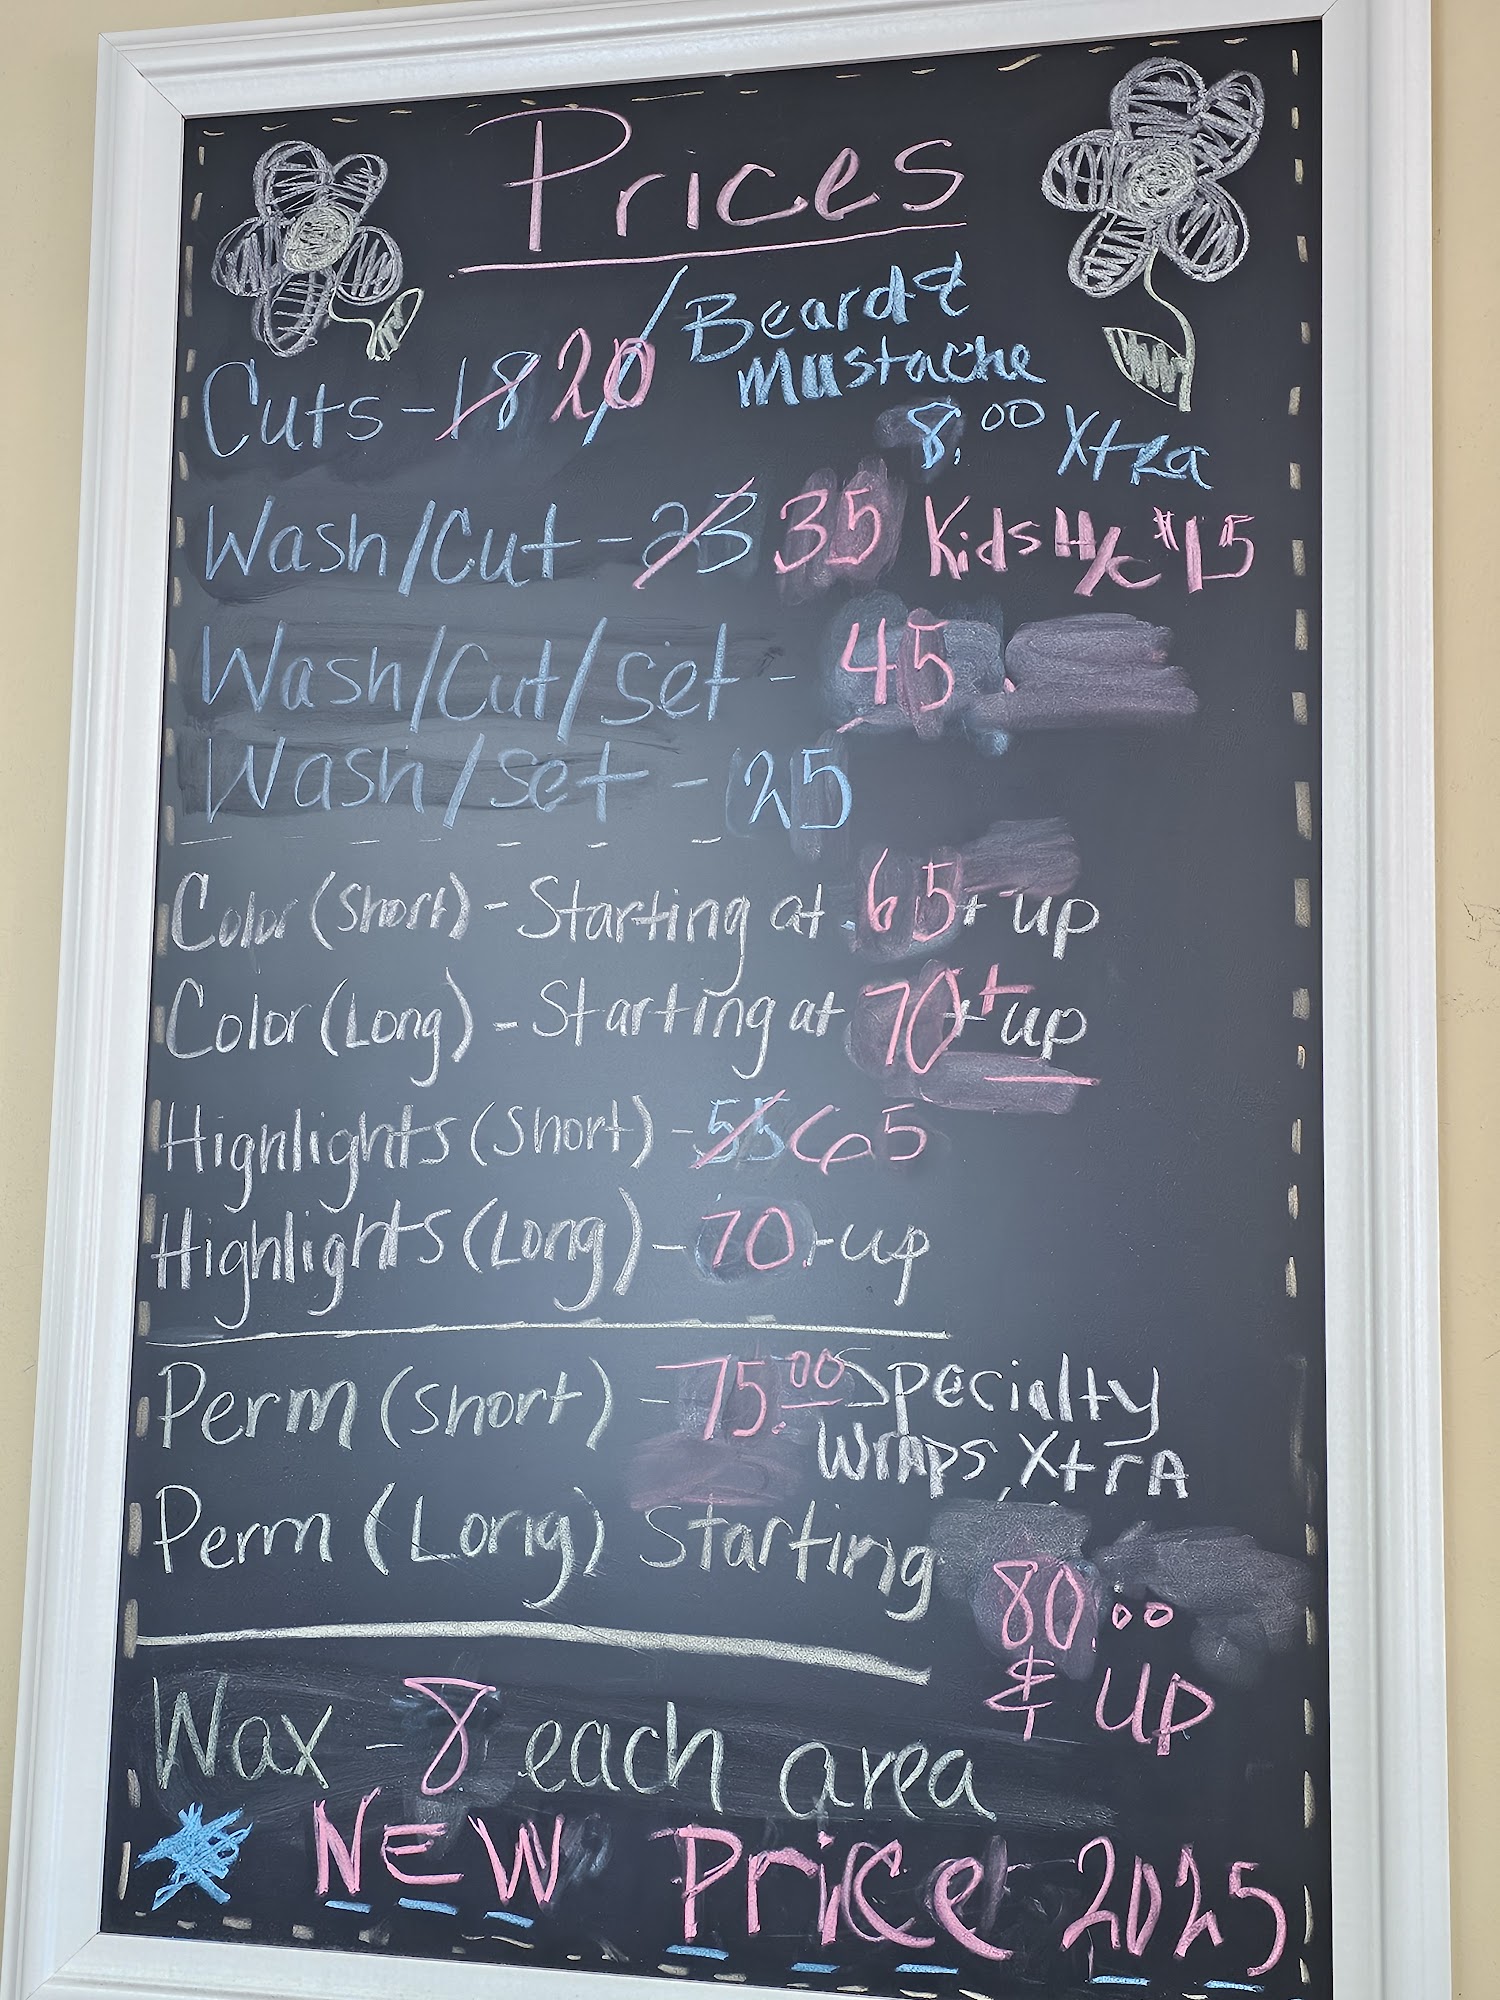 Prices
Cuts - 18 20 / Beard &
Mustache
8.00 Xtra
Wash/Cut - 23 35 Kids H/C $15
Wash/Cut/Set - 45
Wash/Set - 25
Color (Short) - Starting at 65 + up
Color (Long) - Starting at 70 + up
Highlights (Short) - 55 65
Highlights (Long) - 70 + up
Perm (Short) - 75.00 Specialty
Wraps Xtra
Perm (Long) Starting
80.00
& up
Wax - 8 each area
NEW Price 2025